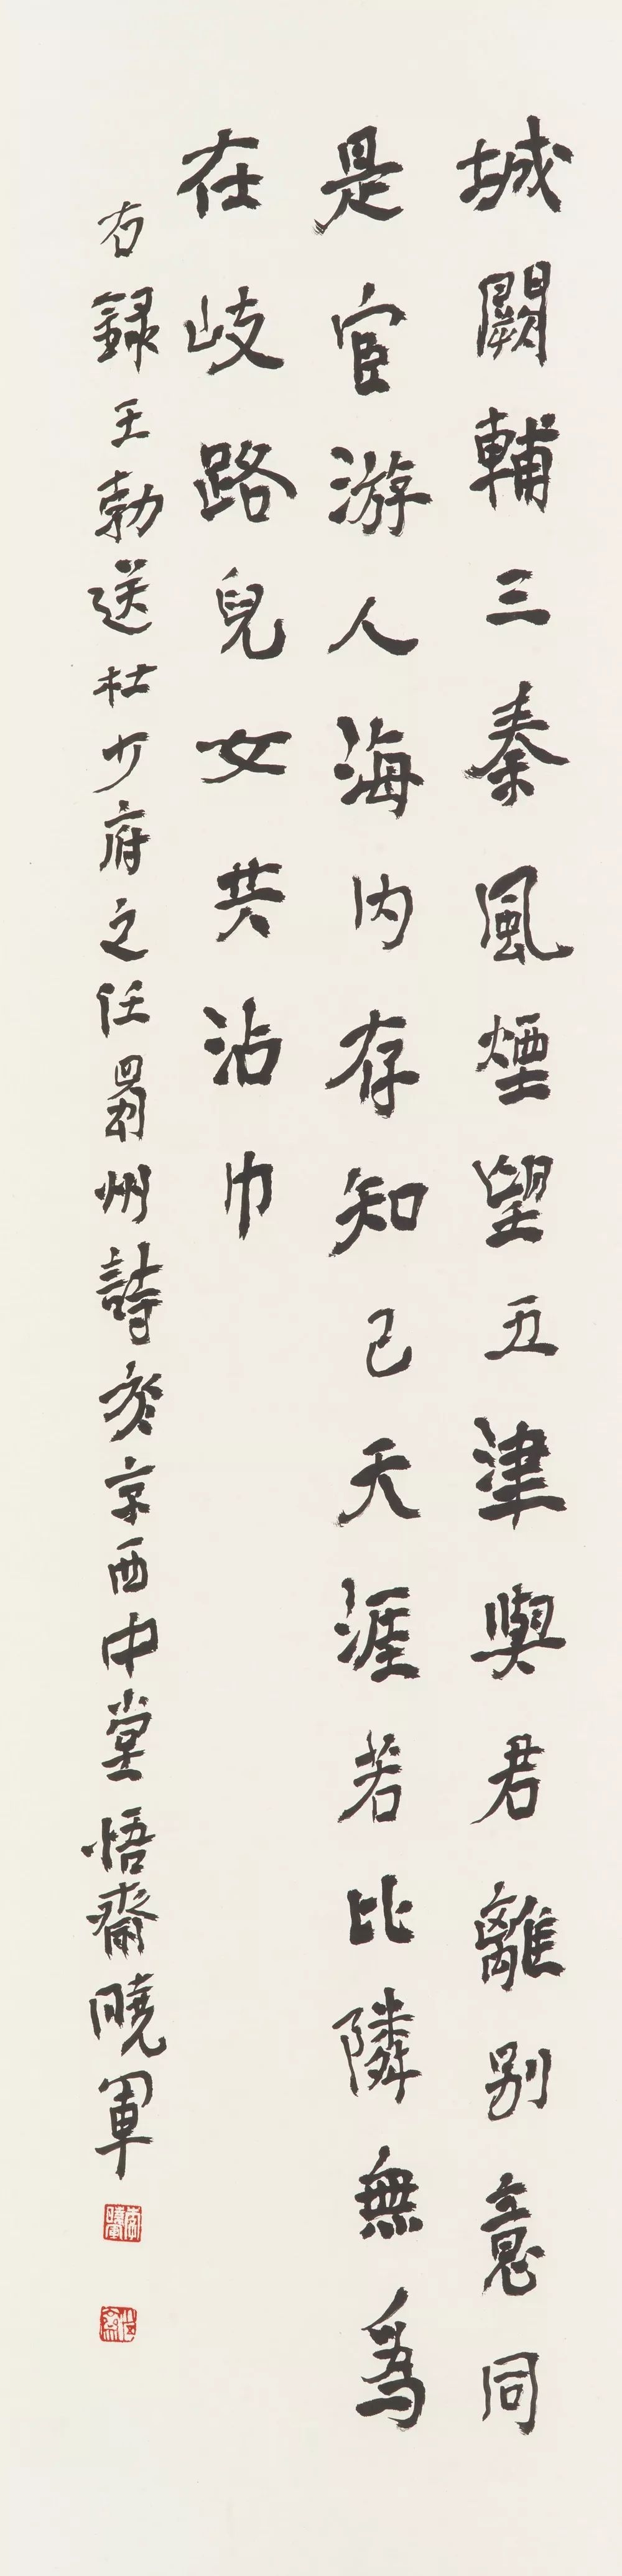 城闕輔三秦風煙望五津與君離別意同
是宦游人海内存知己天涯若比隣無爲
在岐路兒女共沾巾
右録王勃送杜少府之任蜀州詩於京西中堂悟齋曉軍